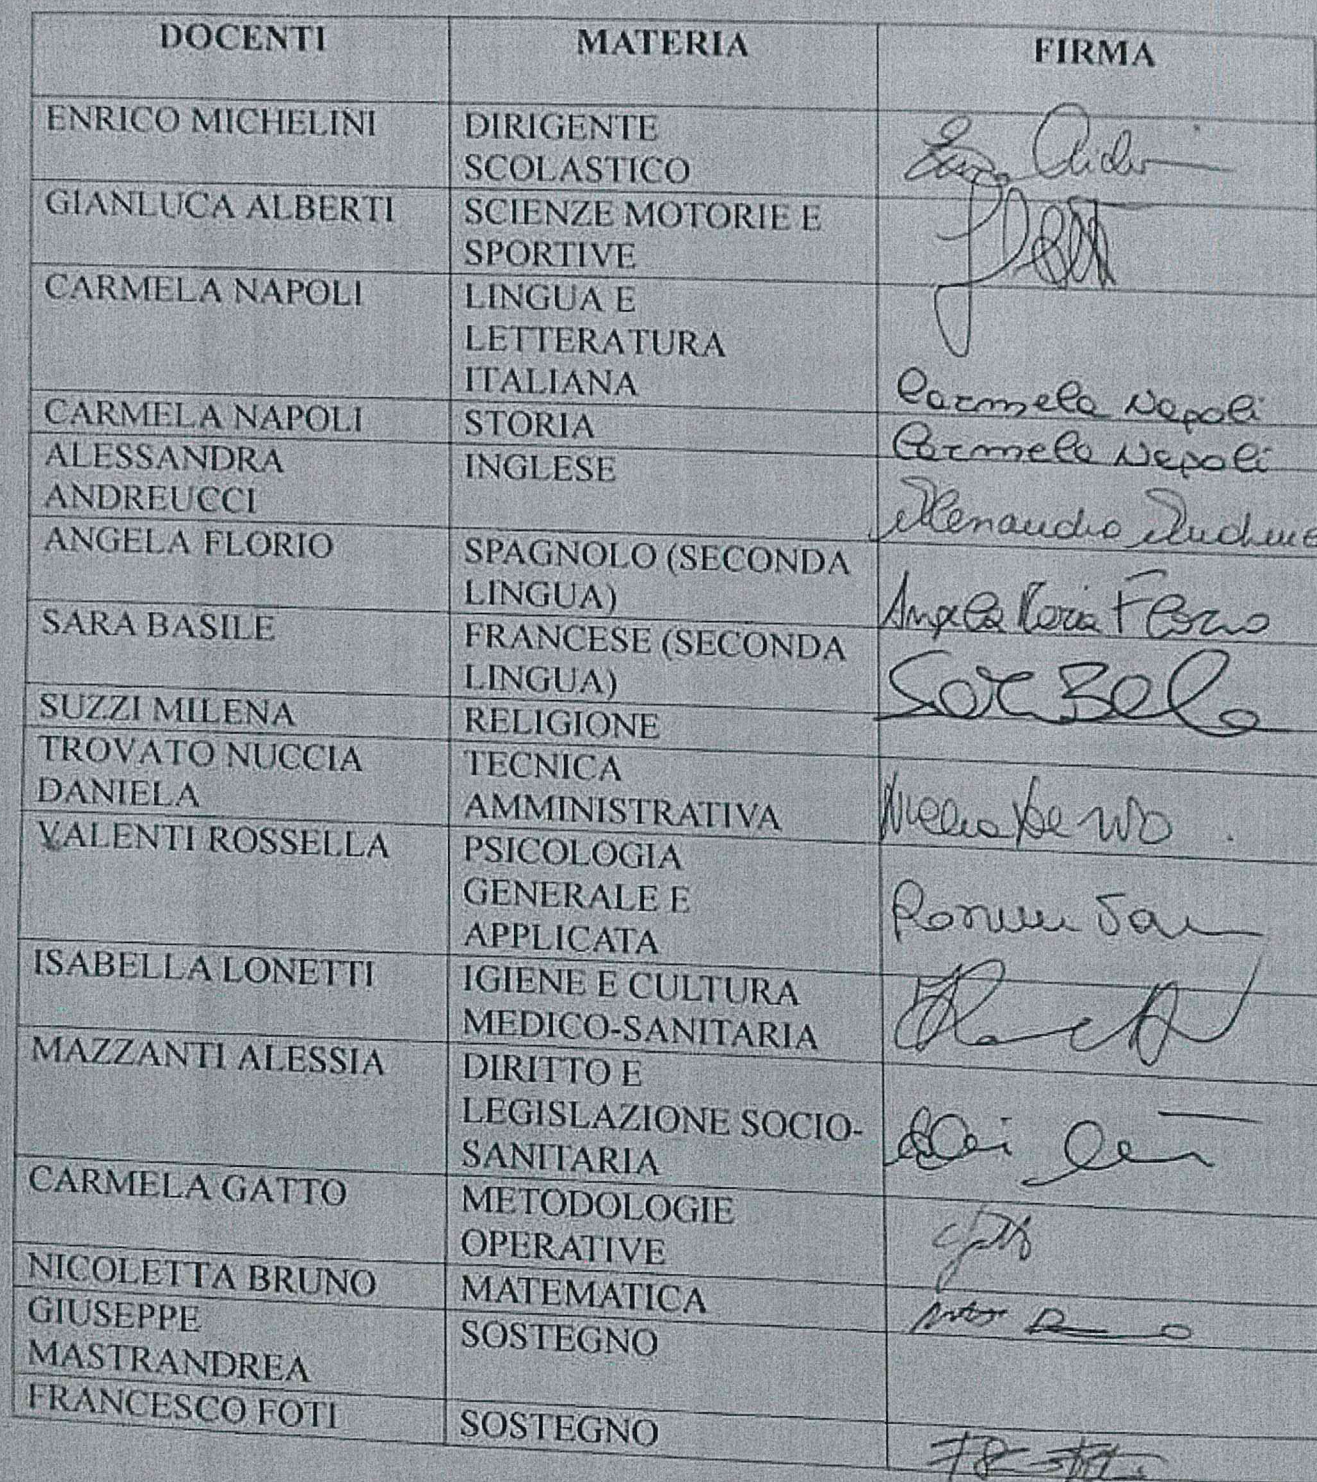 DOCENTI MATERIA FIRMA
ENRICO MICHELINI DIRIGENTE
SCOLASTICO
GIANLUCA ALBERTI SCIENZE MOTORIE E
SPORTIVE
CARMELA NAPOLI LINGUA E
LETTERATURA
ITALIANA Carmela Napoli
CARMELA NAPOLI STORIA Carmela Napoli
ALESSANDRA INGLESE
ANDREUCCI
ANGELA FLORIO SPAGNOLO (SECONDA
LINGUA) Angela Maria Florio
SARA BASILE FRANCESE (SECONDA
LINGUA)
SUZZI MILENA RELIGIONE
TROVATO NUCCIA TECNICA
DANIELA AMMINISTRATIVA
VALENTI ROSSELLA PSICOLOGIA
GENERALE E
APPLICATA
ISABELLA LONETTI IGIENE E CULTURA
MEDICO-SANITARIA
MAZZANTI ALESSIA DIRITTO E
LEGISLAZIONE SOCIO-
SANITARIA
CARMELA GATTO METODOLOGIE
OPERATIVE
NICOLETTA BRUNO MATEMATICA
GIUSEPPE SOSTEGNO
MASTRANDREA
FRANCESCO FOTI SOSTEGNO